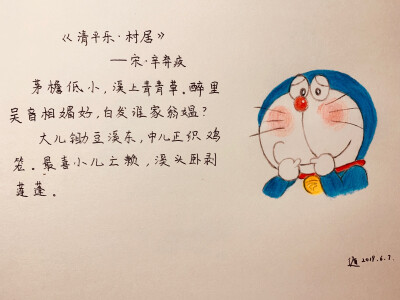 《清平乐·村居》
——宋·辛弃疾
茅檐低小,溪上青青草.醉里
吴音相媚好,白发谁家翁媪?
大儿锄豆溪东,中儿正织鸡
笼.最喜小儿亡赖,溪头卧剥
莲蓬.
2018.6.7.